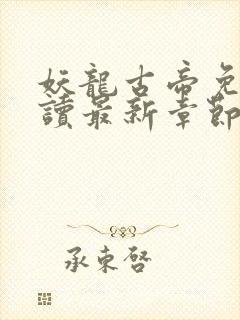 妖龍古帝免
讀最新章節
承東啓